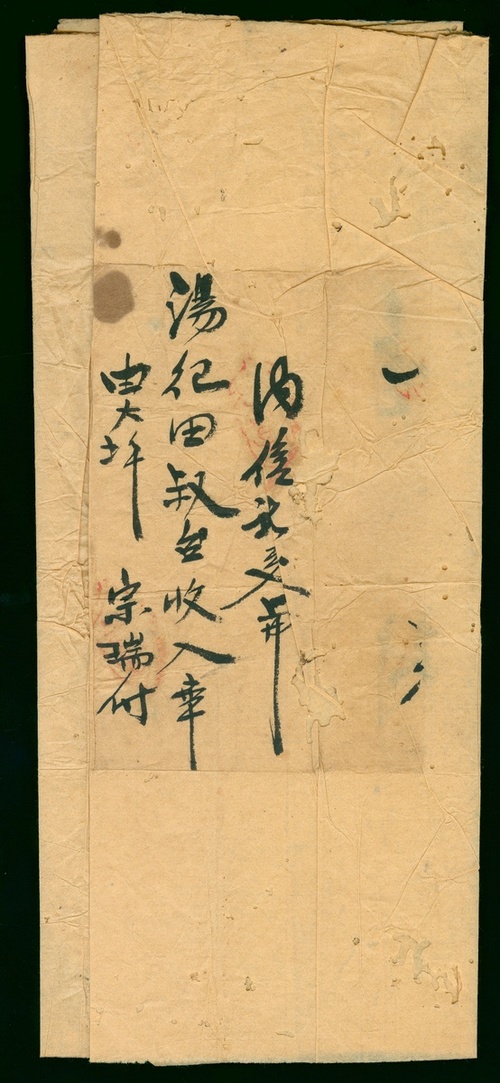 內信祈交弄
湯紀田叔台收入幸
由大坪 宗瑞付